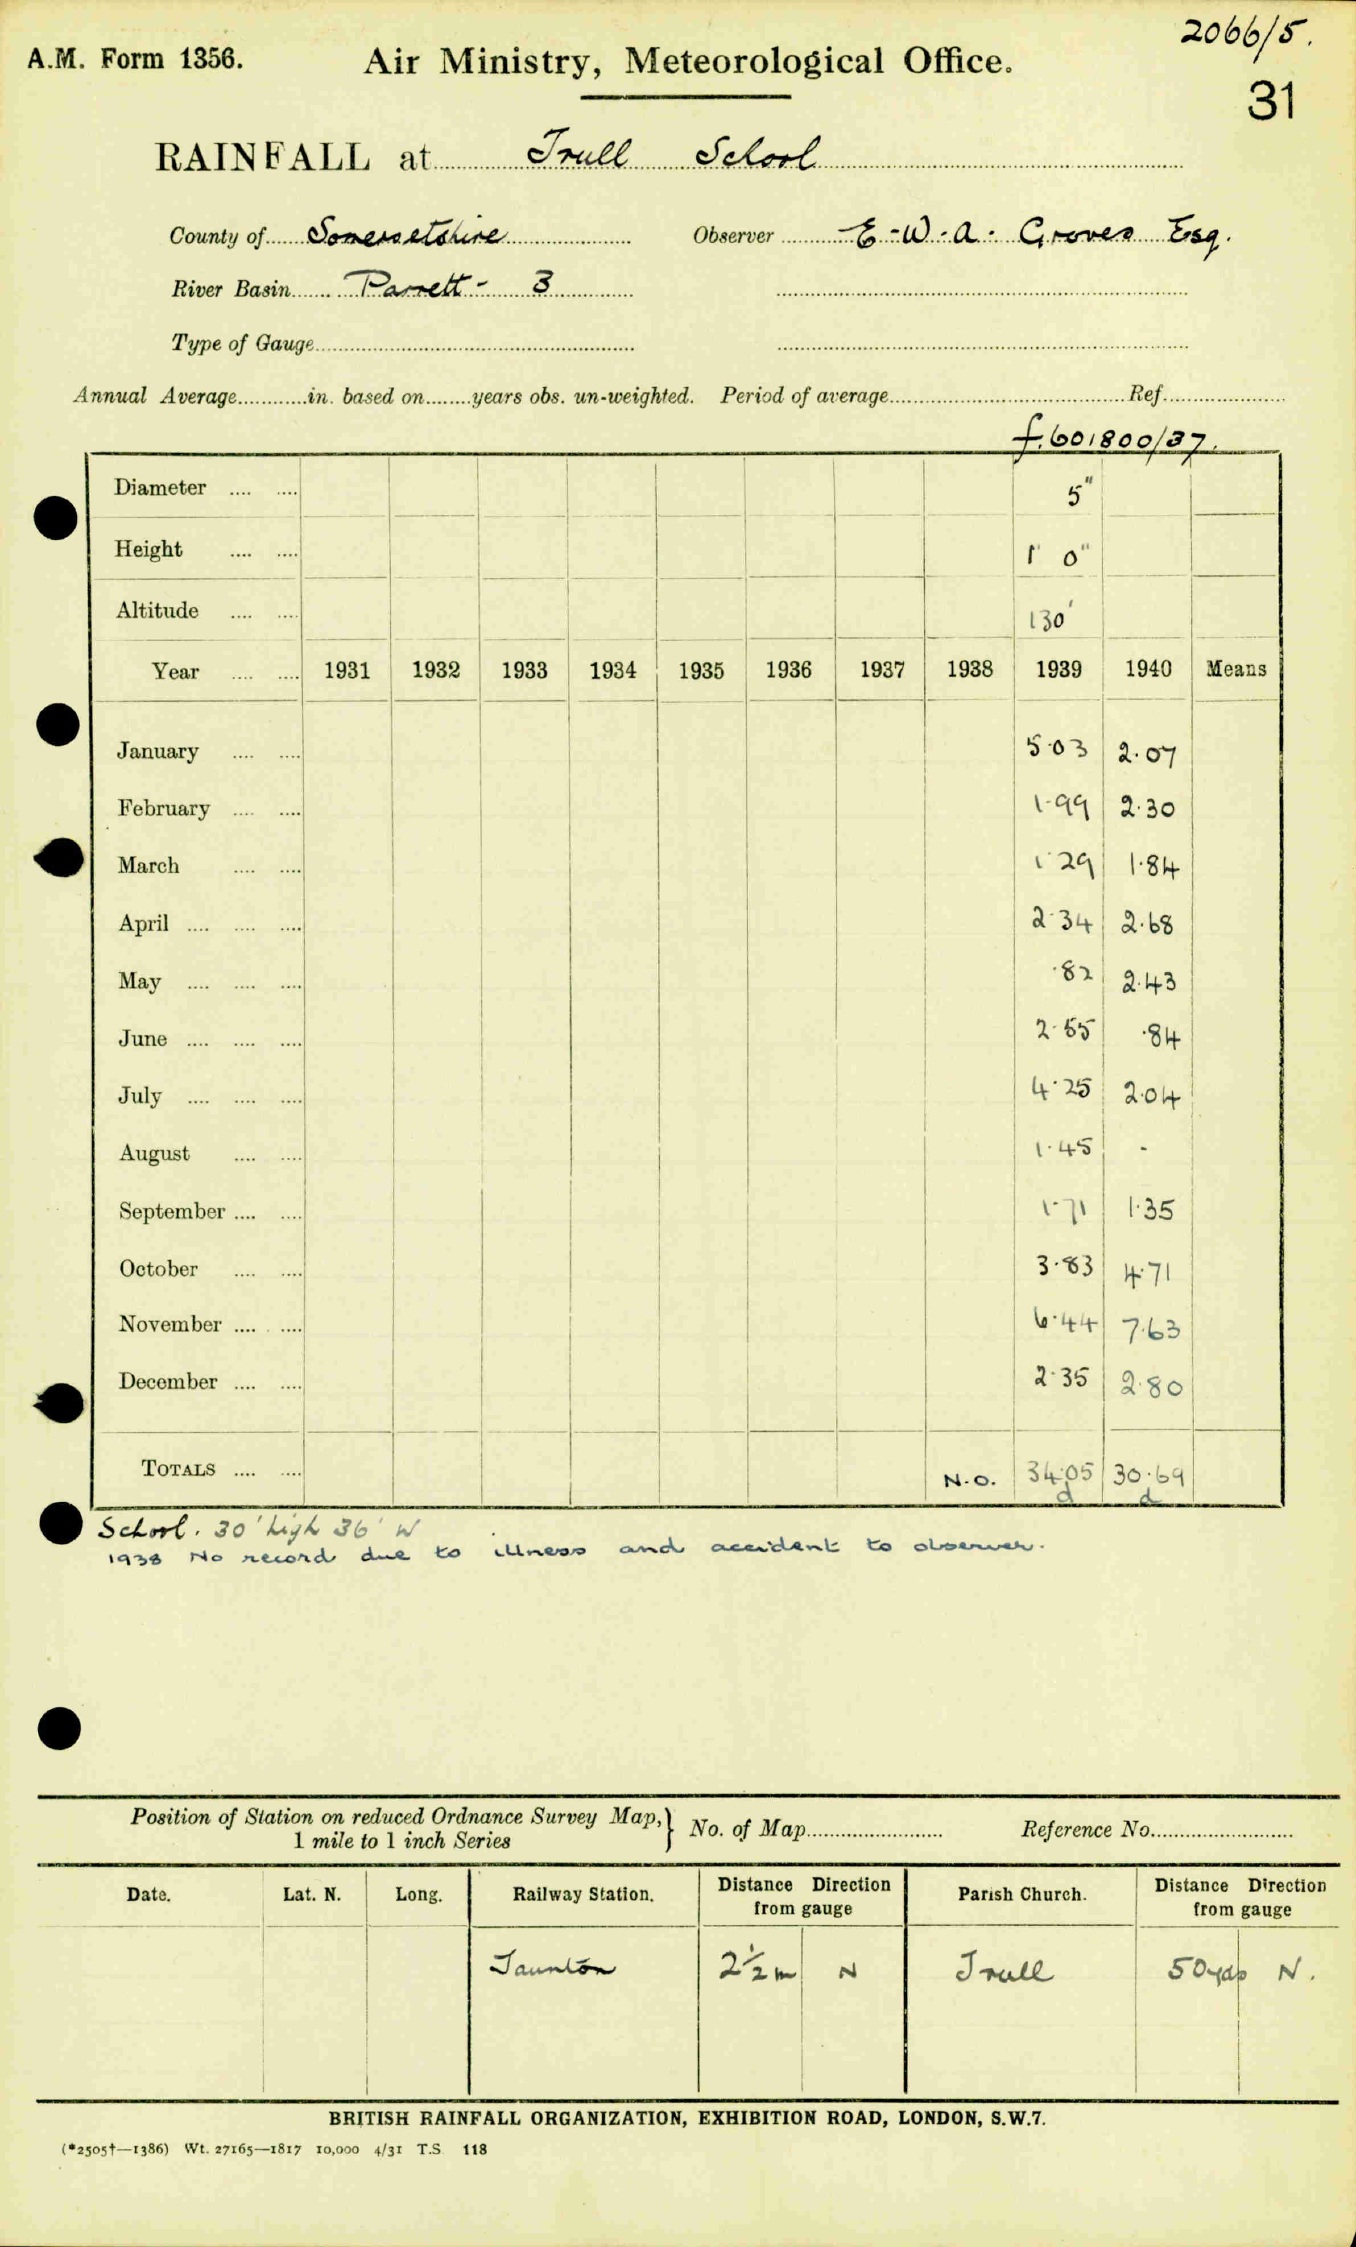 2066/5.
A.M. Form 1356. Air Ministry, Meteorological Office.
31
RAINFALL at Trull School
County of Somersetshire Observer E.W.A. Groves Esq.
River Basin Parrett - 3
Type of Gauge
Annual Average in. based on years obs. un-weighted. Period of average Ref.
f.601800/37.
Diameter 5"
Height 1' 0"
Altitude 130'
Year 1931 1932 1933 1934 1935 1936 1937 1938 1939 1940 Means
January 5.03 2.07
February 1.99 2.30
March 1.29 1.84
April 2.34 2.68
May .82 2.43
June 2.55 .84
July 4.25 2.04
August 1.45 -
September 1.71 1.35
October 3.83 4.71
November 6.44 7.63
December 2.35 2.80
TOTALS N.O. 34.05 30.69
d d
School. 30' high 36' W
1938 No record due to illness and accident to observer.
Position of Station on reduced Ordnance Survey Map, } No. of Map Reference No.
1 mile to 1 inch Series
Date. Lat. N. Long. Railway Station. Distance Direction from gauge Parish Church. Distance Direction from gauge
Taunton 2½ m N Trull 50 yds N.
BRITISH RAINFALL ORGANIZATION, EXHIBITION ROAD, LONDON, S.W.7.
(*2505†—1386) Wt. 27165—1817 10,000 4/31 T.S. 118